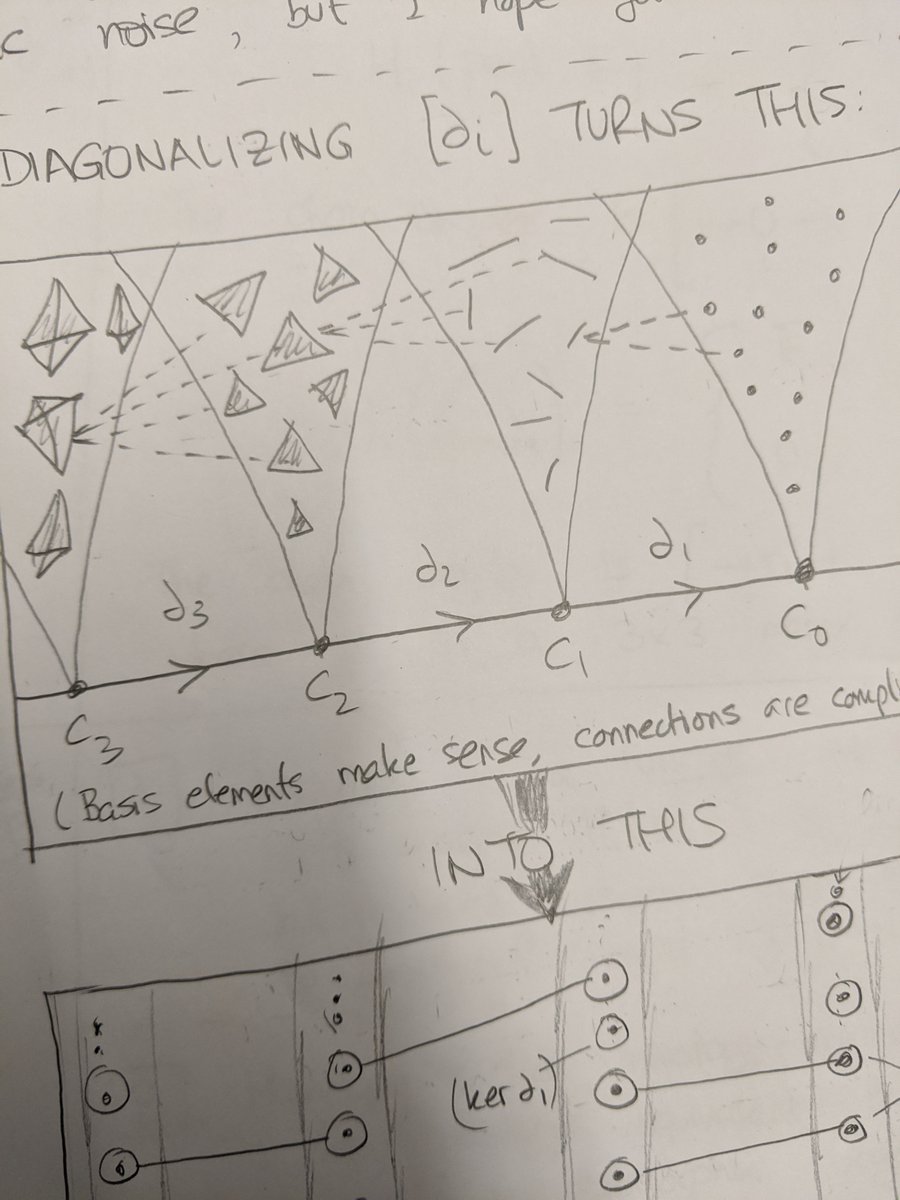 c noise, but I hope
DIAGONALIZING [∂i] TURNS THIS:
∂3
∂2
∂1
C3
C2
C1
C0
(Basis elements make sense, connections are compl
INTO THIS
(ker ∂1)